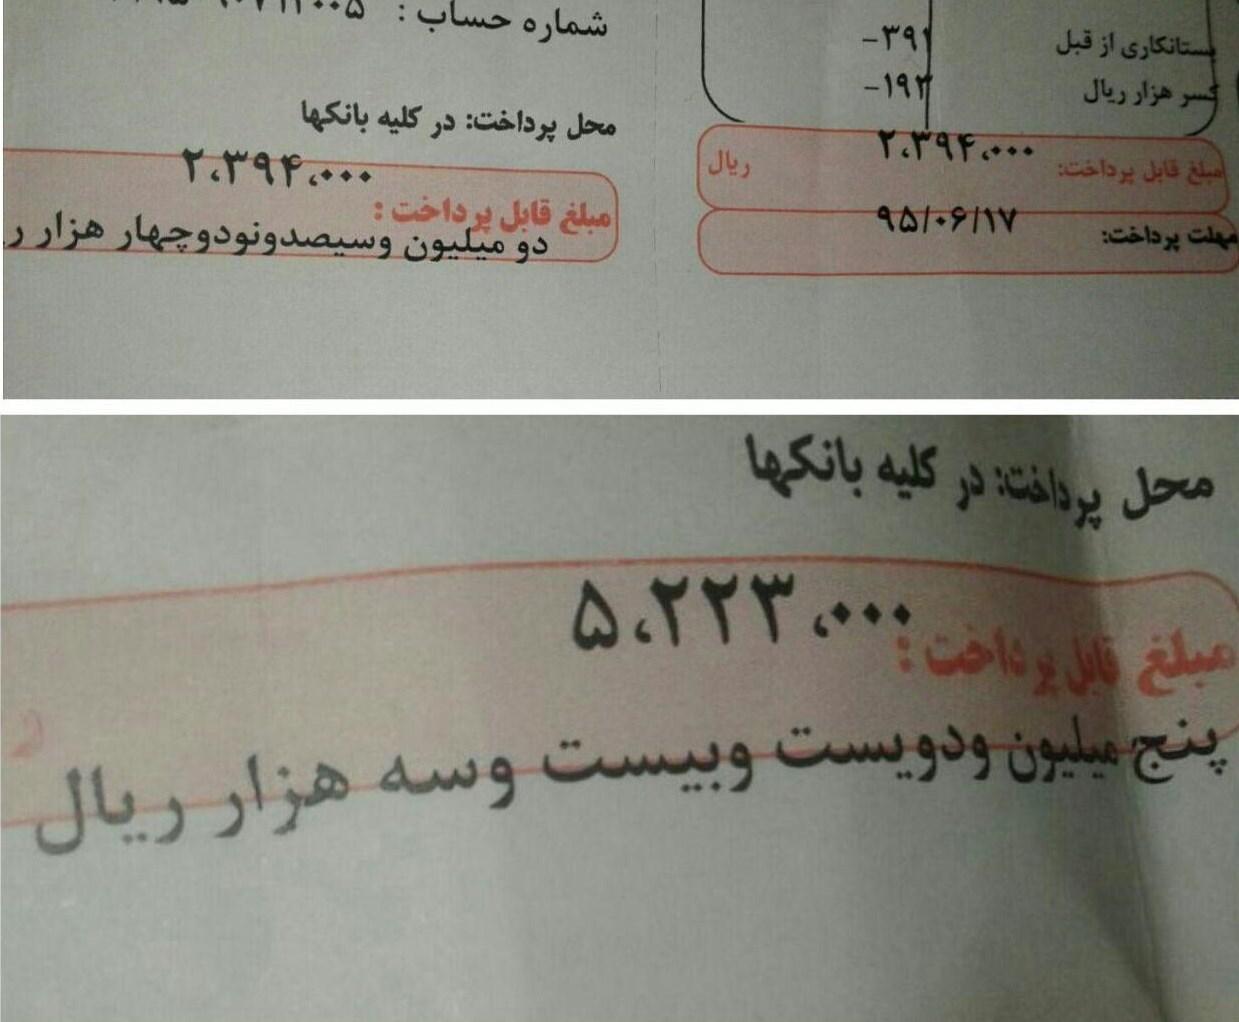 شماره حساب :
بستانکاری از قبل -۳۹۱
کسر هزار ریال -۱۹۲
مبلغ قابل پرداخت: ۲،۳۹۴،۰۰۰ ریال
مهلت پرداخت: ۹۵/۰۶/۱۷
محل پرداخت: در کلیه بانکها
۲،۳۹۴،۰۰۰
مبلغ قابل پرداخت :
دو میلیون وسیصدونودوچهار هزار
محل پرداخت: در کلیه بانکها
۵،۲۲۳،۰۰۰
مبلغ قابل پرداخت :
پنج میلیون ودویست وبیست وسه هزار ریال